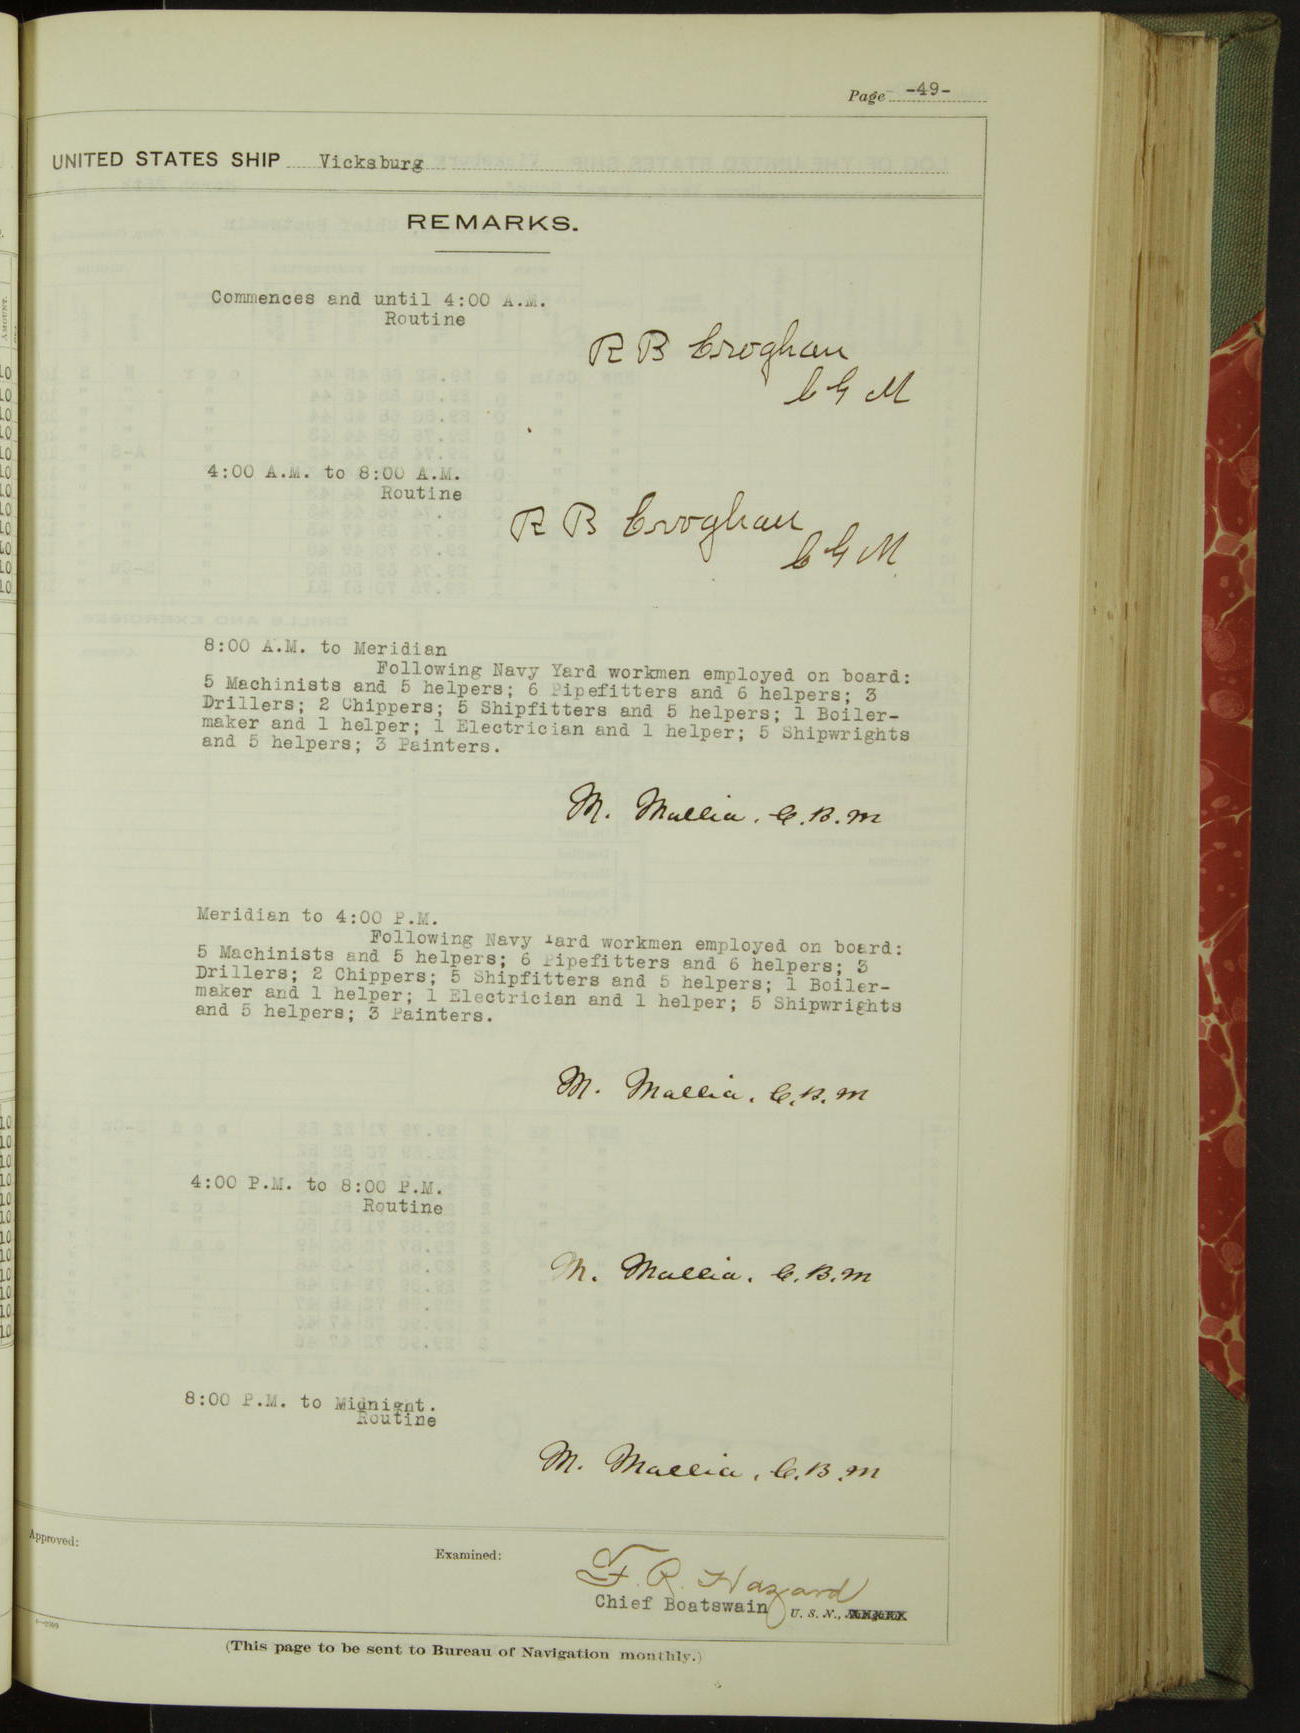 Page -49-
UNITED STATES SHIP Vicksburg
REMARKS.
Commences and until 4:00 A.M.
Routine
R B Croghan
C G M
4:00 A.M. to 8:00 A.M.
Routine
R B Croghan
C G M
8:00 A.M. to Meridian
Following Navy Yard workmen employed on board:
5 Machinists and 5 helpers; 6 Pipefitters and 6 helpers; 3
Drillers; 2 Chippers; 5 Shipfitters and 5 helpers; 1 Boiler-
maker and 1 helper; 1 Electrician and 1 helper; 5 Shipwrights
and 5 helpers; 3 Painters.
M. Mallia. C.B.M
Meridian to 4:00 P.M.
Following Navy Yard workmen employed on board:
5 Machinists and 5 helpers; 6 Pipefitters and 6 helpers; 3
Drillers; 2 Chippers; 5 Shipfitters and 5 helpers; 1 Boiler-
maker and 1 helper; 1 Electrician and 1 helper; 5 Shipwrights
and 5 helpers; 3 Painters.
M. Mallia. C.B.M
4:00 P.M. to 8:00 P.M.
Routine
M. Mallia. C.B.M
8:00 P.M. to Midnight.
Routine
M. Mallia. C.B.M
Approved:
Examined:
F. R. Hazard
Chief Boatswain U. S. N.,
(This page to be sent to Bureau of Navigation monthly.)